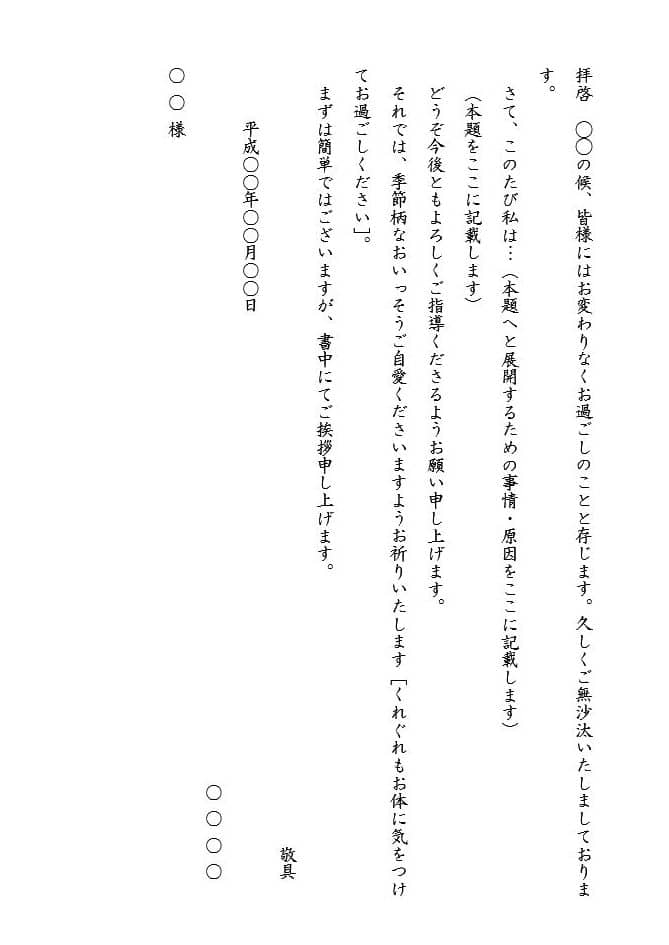 拝啓　〇〇の候、皆様にはお変わりなくお過ごしのことと存じます。久しくご無沙汰いたしましておりま
す。
さて、このたび私は…（本題へと展開するための事情・原因をここに記載します）
（本題をここに記載します）
どうぞ今後ともよろしくご指導くださるようお願い申し上げます。
それでは、季節柄なおいっそうご自愛くださいますようお祈りいたします［くれぐれもお体に気をつけ
てお過ごしください］。
まずは簡単ではございますが、書中にてご挨拶申し上げます。
敬具
平成〇〇年〇〇月〇〇日
〇〇〇〇
〇〇様